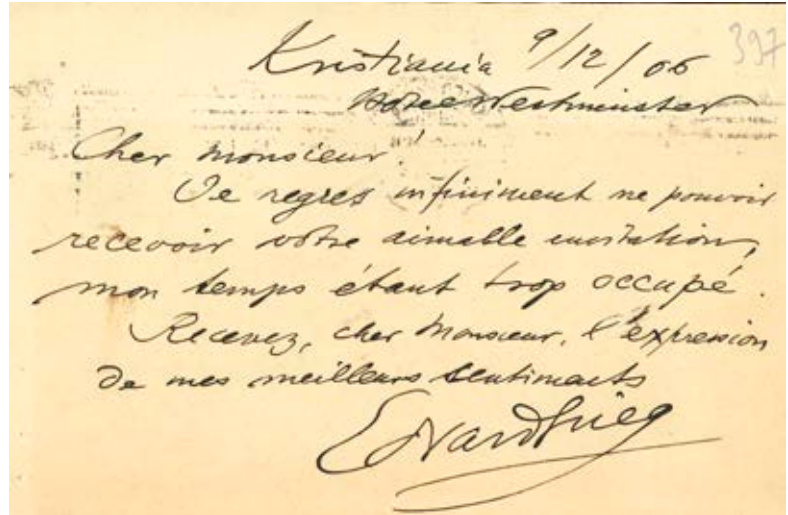 Kristiania 9/12/06
397
Hotel Westminster
Cher monsieur!
Je regret infiniment ne pouvoir
recevoir votre aimable invitation,
mon temps étant trop occupé.
Recevez, cher Monsieur, l'expression
de mes meilleurs sentiments
Edvard Grieg